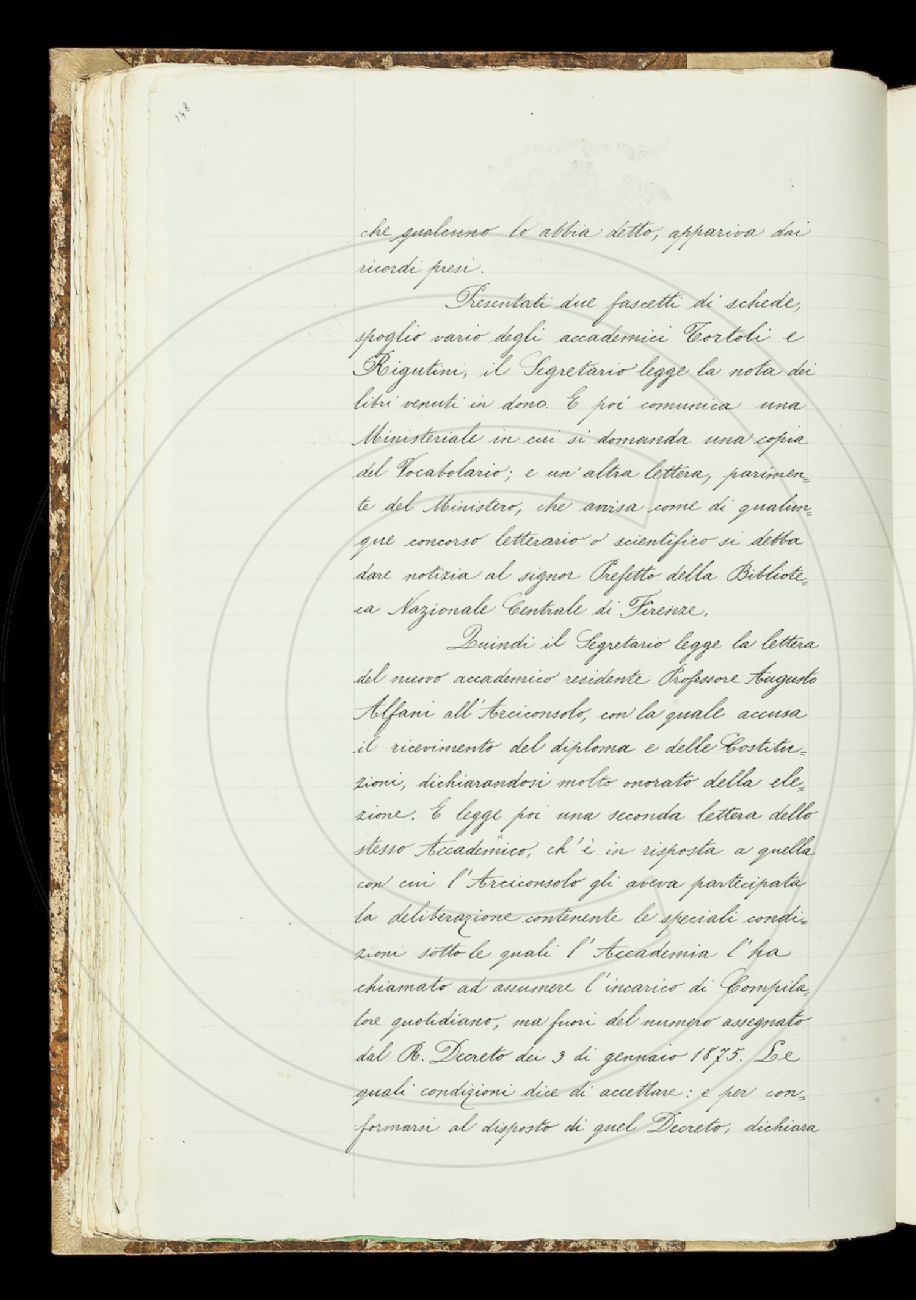 148
che qualcuno lo abbia detto, appariva dai
ricordi presi.
Presentati due fascetti di schede,
spoglio vario degli accademici Tortoli e
Rigutini, il Segretario legge la nota dei
libri venuti in dono. E poi comunica una
Ministeriale in cui si domanda una copia
del Vocabolario; e un'altra lettera, parimen=
te del Ministero, che avvisa come di qualun=
que concorso letterario o scientifico si debba
dare notizia al signor Prefetto della Bibliote=
ca Nazionale Centrale di Firenze.
Quindi il Segretario legge la lettera
del nuovo accademico residente Professore Augusto
Alfani all'Arciconsolo, con la quale accusa
il ricevimento del diploma e delle Costitu=
zioni, dichiarandosi molto onorato della ele=
zione. E legge poi una seconda lettera dello
stesso Accademico, ch'è in risposta a quella
con cui l'Arciconsolo gli aveva partecipata
la deliberazione contenente le speciali condi=
zioni sotto le quali l'Accademia l'ha
chiamato ad assumere l'incarico di Compila=
tore quotidiano, ma fuori del numero assegnato
dal R. Decreto dei 3 di gennaio 1875. Le
quali condizioni dice di accettare: e per con=
formarsi al disposto di quel Decreto, dichiara